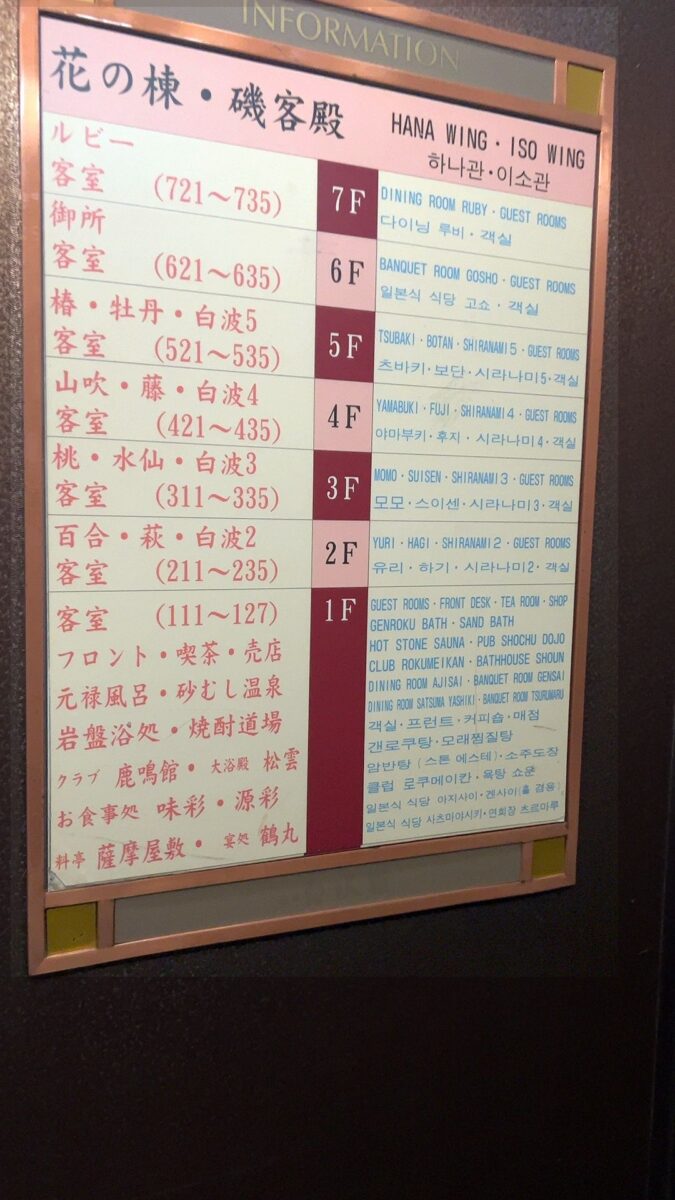 INFORMATION
花の棟・磯客殿
HANA WING・ISO WING
하나관・이소관
ルビー
客室 (721〜735)
7F
DINING ROOM RUBY・GUEST ROOMS
다이닝 루비・객실
御所
客室 (621〜635)
6F
BANQUET ROOM GOSHO・GUEST ROOMS
일본식 식당 고쇼・객실
椿・牡丹・白波5
客室 (521〜535)
5F
TSUBAKI・BOTAN・SHIRANAMI5・GUEST ROOMS
츠바키・보단・시라나미5・객실
山吹・藤・白波4
客室 (421〜435)
4F
YAMABUKI・FUJI・SHIRANAMI4・GUEST ROOMS
야마부키・후지・시라나미4・객실
桃・水仙・白波3
客室 (311〜335)
3F
MOMO・SUISEN・SHIRANAMI3・GUEST ROOMS
모모・스이센・시라나미3・객실
百合・萩・白波2
客室 (211〜235)
2F
YURI・HAGI・SHIRANAMI2・GUEST ROOMS
유리・하기・시라나미2・객실
客室 (111〜127)
フロント・喫茶・売店
元禄風呂・砂むし温泉
岩盤浴処・焼酎道場
クラブ 鹿鳴館・大浴殿 松雲
お食事処 味彩・源彩
料亭 薩摩屋敷・宴処 鶴丸
1F
GUEST ROOMS・FRONT DESK・TEA ROOM・SHOP
GENROKU BATH・SAND BATH
HOT STONE SAUNA・PUB SHOCHU DOJO
CLUB ROKUMEIKAN・BATHHOUSE SHOUN
DINING ROOM AJISAI・BANQUET ROOM GENSAI
DINING ROOM SATSUMA YASHIKI・BANQUET ROOM TSURUMARU
객실・프런트・커피숍・매점
갠로쿠탕・모래찜질탕
암반탕 (스톤 에스테)・소주도장
클럽 로쿠메이칸・욕탕 쇼운
일본식 식당 아지사이・겐사이(홀 겸용)
일본식 식당 사츠마야시키・연회장 츠르마루